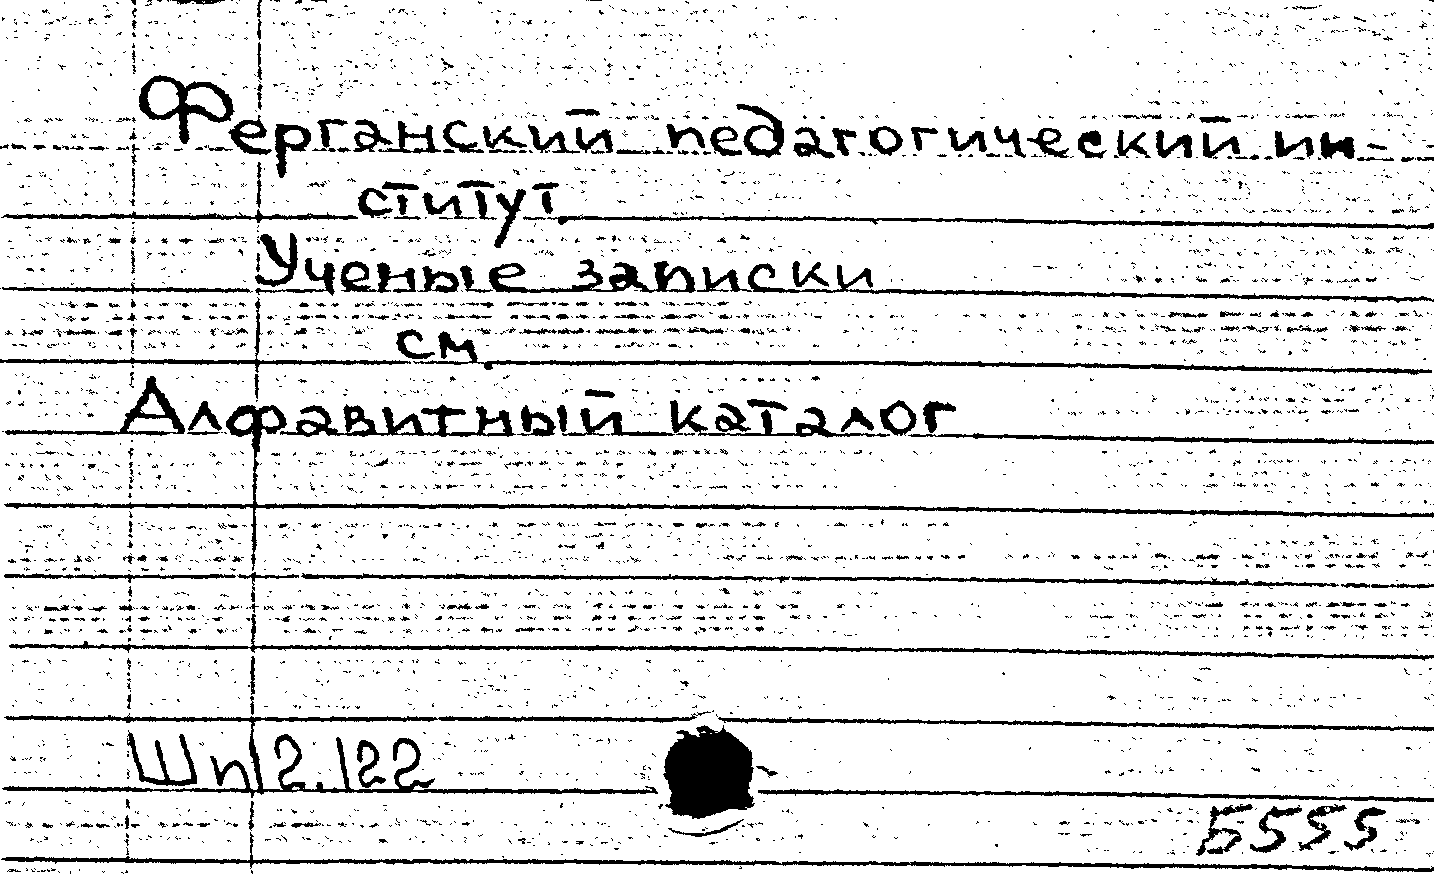 Ферганский педагогический ин-
ститут.
Ученые записки
см.
Алфавитный каталог
Шп12.122
Б555